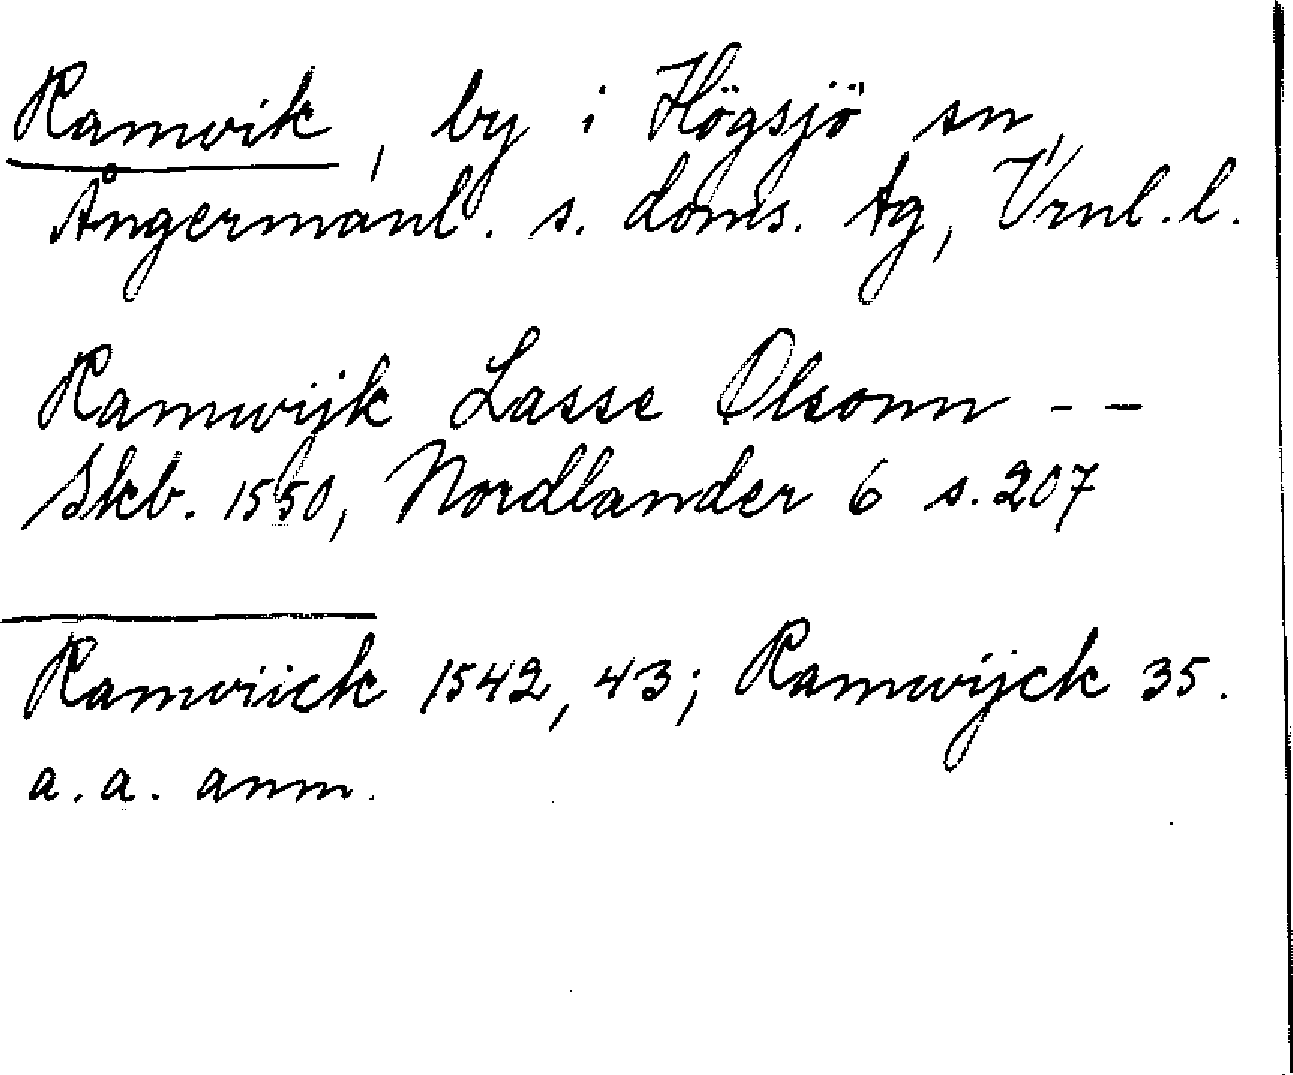 Ramvik, by i Högsjö sn,
Ångermanl. s. doms. tg, Vrnl. l.
Ramwijk Lasse Olsonn - -
Skb. 1550, Nordlander 6 s. 207
Ramviick 1542, 43; Ramwijck 35.
a. a. anm.